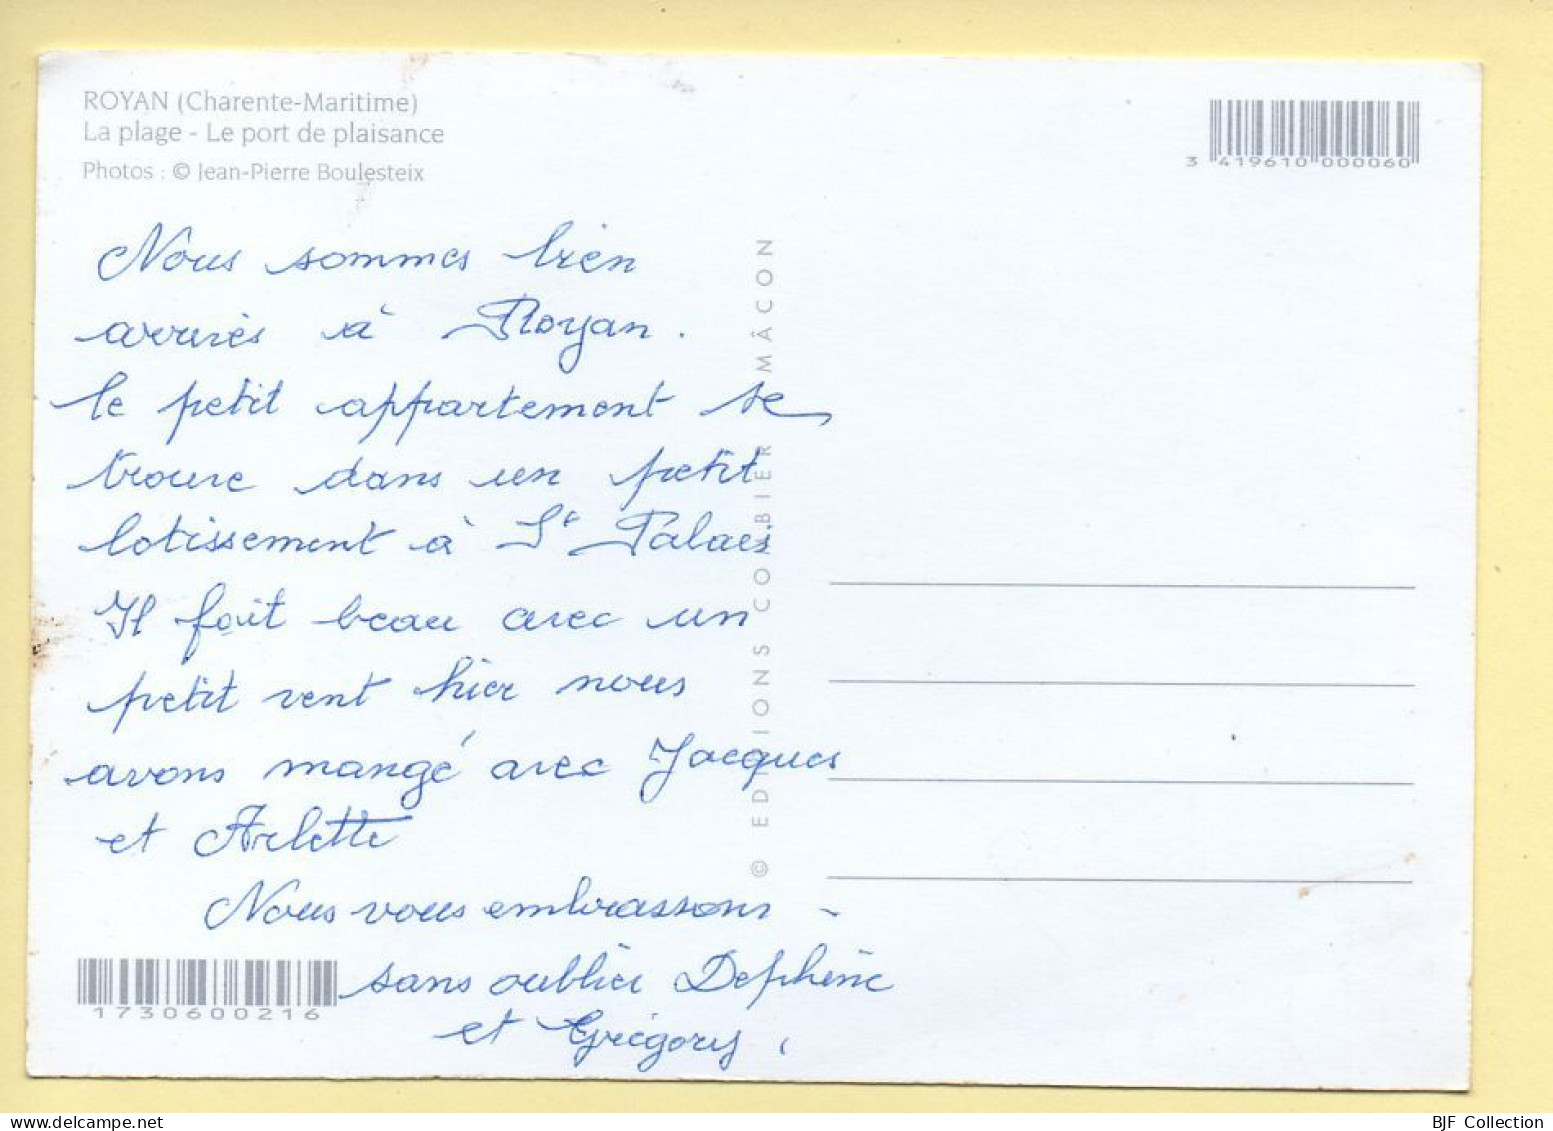 ROYAN (Charente-Maritime)
La plage - Le port de plaisance
Photos : © Jean-Pierre Boulesteix
3 419610 000060
Nous sommes bien
arrivés à Royan.
le petit appartement se
trouve dans un petit
lotissement à St Palais
Il fait beau avec un
petit vent hier nous
avons mangé avec Jacques
et Arlette
Nous vous embrassons -
sans oublier Delphine
et Grégory,
© EDITIONS COMBIER MÂCON
1730600216
BJF Collection